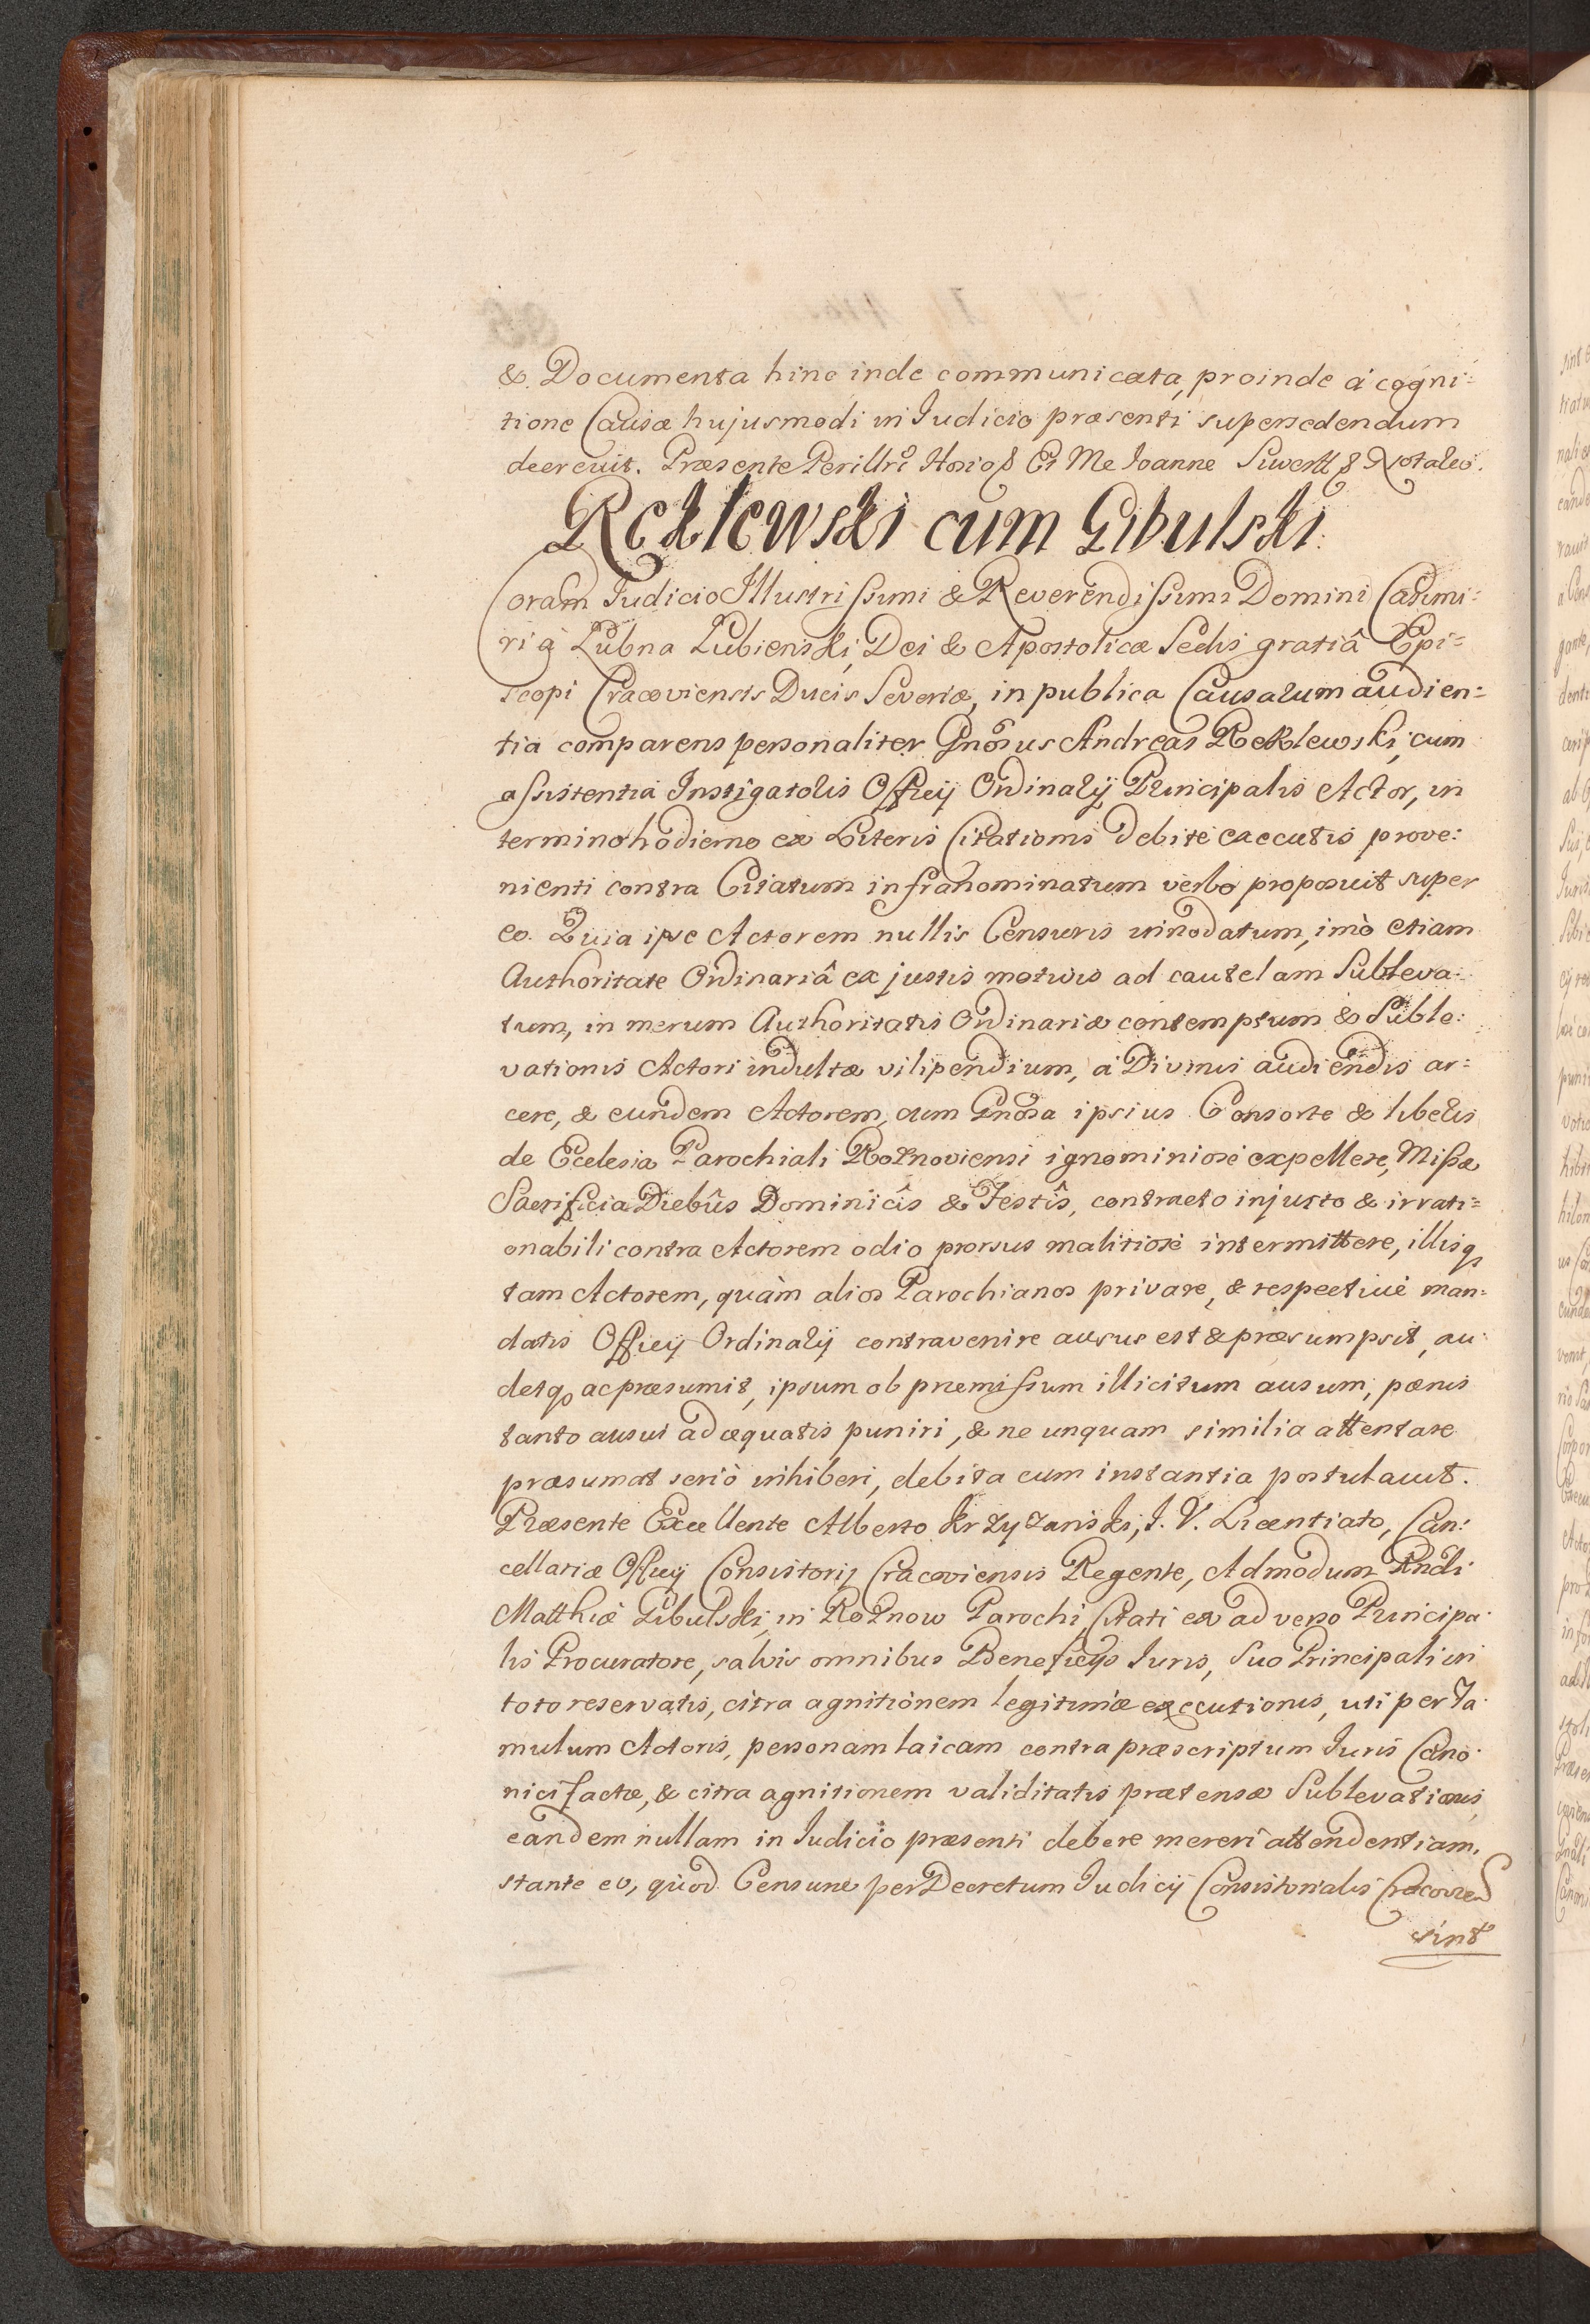 & Documenta hinc inde communicata, proinde á cogni=
tione Causæ hujusmodi in Iudicio præsenti supersedendum
decrevit. Præsente Perillri Et Me Ioanne
Reklewski cum Gibulski.
Coram Iudicio Illustrissimi & Reverendissimi Domini Casimi=
ri à Łubna Łubienski, Dei & Apostolicæ Sedis gratiâ Epi=
scopi Cracoviensis Ducis Severiæ, in publica Causarum audien=
tia comparens personaliter Gnosus Andreas Reklewski, cum
assistentia Instigatoris Officij Ordinarij Principalis Actor, in
termino hodierno ex Literis Citationis debitè executis prove:
nienti contra Citatum infranominatum verbo proposuit super
eo. Quia ipse Actorem nullis Censuris innodatum, imò etiam
Authoritate Ordinariâ ex justis motivis ad cautelam Subleva:
tum, in merum Authoritatis Ordinariæ contemptum & Suble:
vationis Actori indultæ vilipendium, á Divinis audiendis ar=
cere, & eundem Actorem, cum Gnosa ipsius Consorte & liberis
de Ecclesia Parochiali Rożnoviensi ignominiosè expellere, Missæ
Sacrificia Diebûs Dominicîs & Festîs, contracto injusto & irrati=
onabili contra Actorem odio prorsus malitiosè intermittere, illisq
tam Actorem, quàm alios Parochianos privare, & respectivè man=
datis Officij Ordinarij contravenire ausus est & præsumpsit, au
detq ac præsumit, ipsum ob præmissum illicitum ausum, pœnis
tanto ausui adæquatis puniri, & ne unquam similia attentare
præsumat seriò inhiberi, debita cum instantia postulavit.
Præsente Excellente Alberto Krzyżanski, I. V. Licentiato, Can:
cellariæ Officij Consistorij Cracoviensis Regente, Admodum Rndi
Matthiæ Gibulski, in Rożnow Parochi, Citati ex adverso Principa
lis Procuratore, salvis omnibus Beneficijs Iuris, Suo Principali in
toto reservatis, citra agnitionem legitimæ executionis, uti per Fa
mulum Actoris, personam laicam contra præscriptum Iuris Cano
nici factæ, & citra agnitionem validitatis prætensæ Sublevationis,
eandem nullam in Iudicio præsenti debere mereri attendentiam,
stante eo, quòd Censuræ per Decretum Iudicij Consistorialis Cracovien
sint